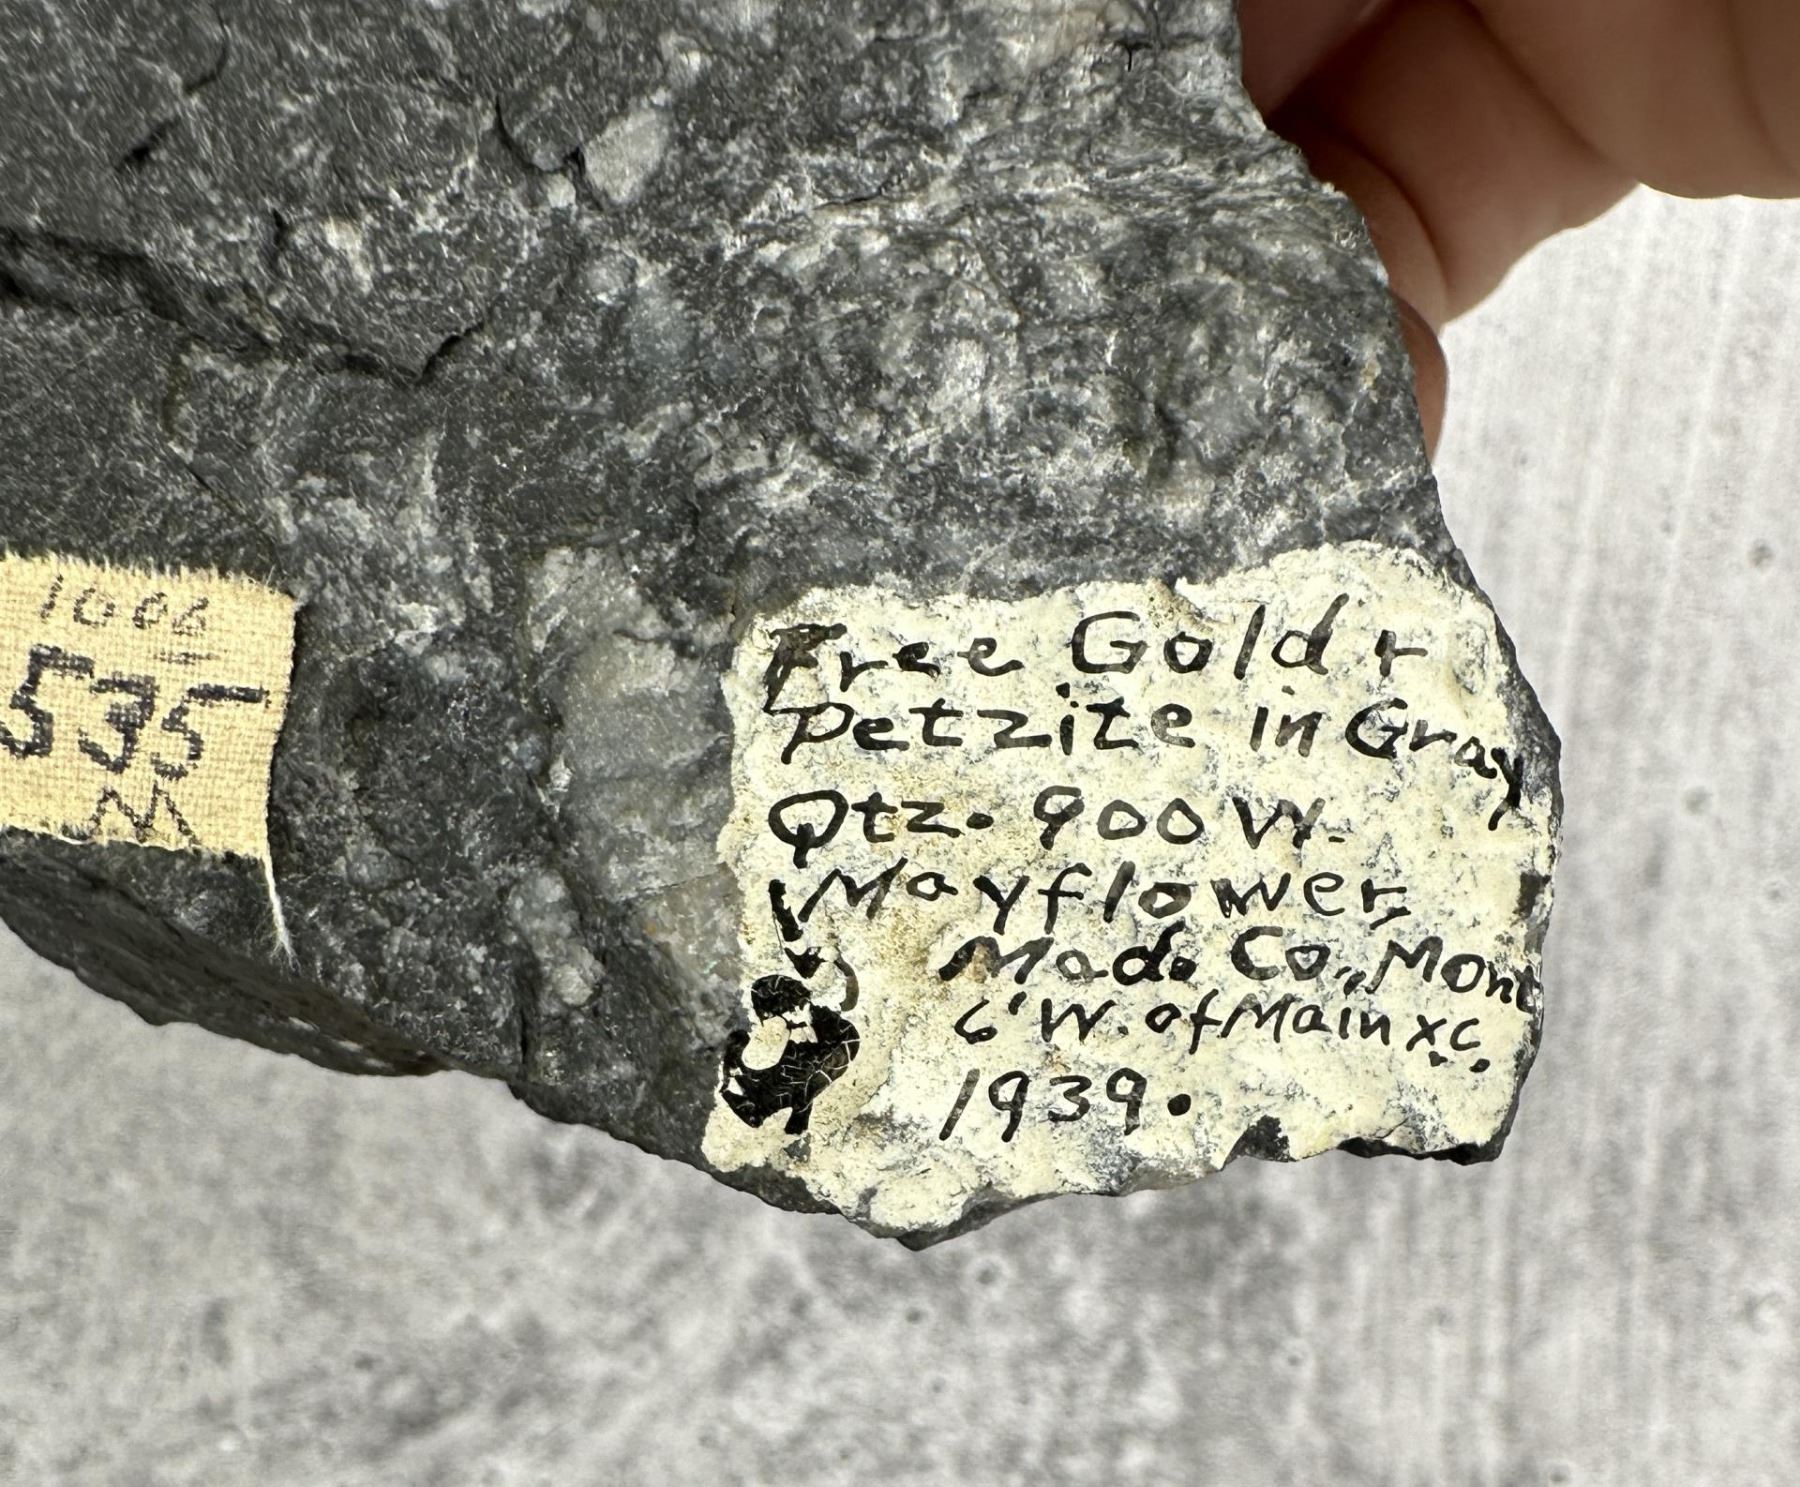 1006
535
M
Free Gold +
Petzite in Gray
Qtz. 900 W.
Mayflower,
Mad. Co., Mont
6' W. of Main x.c.
1939.